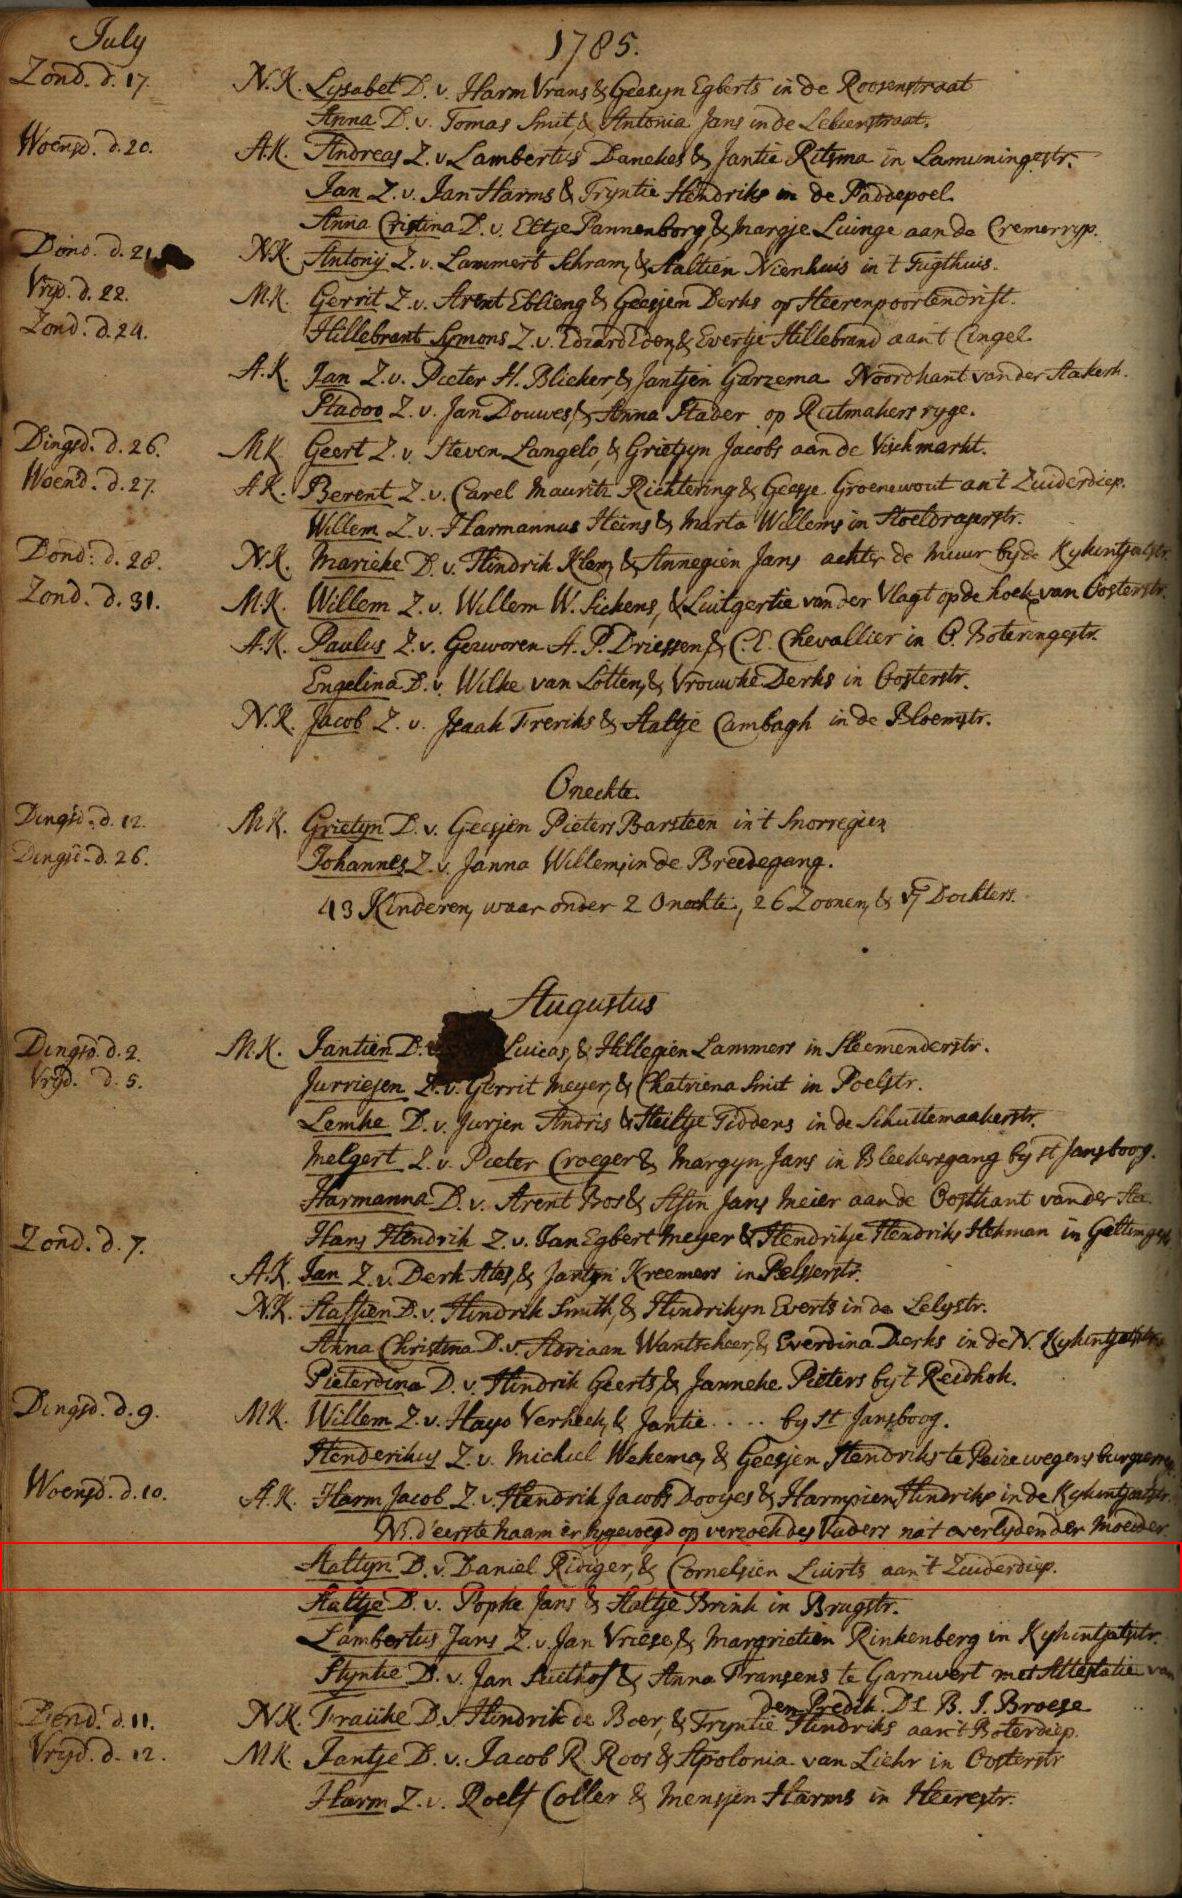 July 1785.
Zond. d. 17. N.K. Lysabet D. v. Harm Vrans & Geesyn Egberts in de Roosenstraat
Anna D. v. Tomas Smit, & Antonia Jans in de Leliestraat.
Woensd. d. 20. A.K. Andreas Z. v. Lambertus Danekes & Jantie Ritsma in Lamuningestr.
Jan Z. v. Jan Harms & Tryntie Hendriks in de Paddepoel.
Anna Cristina D. v. Eltje Pannenborg, & Margje Luinge aan de Cremerryp.
Dond. d. 21 N.K. Antony Z. v. Lammert Schram, & Aaltien Nienhuis in 't Tugthuis.
Vryd. d. 22. M.K. Gerrit Z. v. Arent Ebbieng & Geesjen Derks op Heerenpoortendrift.
Zond. d. 24. Hillebrant Symons Z. v. Edzard Eden, & Evertje Hillebrand aan 't Cingel.
A.K. Jan Z. v. Pieter H. Blieker, & Jantjen Garzema Noordkant van der Aakerk.
Stadoo Z. v. Jan Douwes, & Anna Stader op Rutmakers ryge.
Dingsd. d. 26. M.K. Geert Z. v. Steven Langelo, & Grietjyn Jacobs aan de Vischmarkt.
Woend. d. 27. A.K. Berent Z. v. Carel Mauritz Richtering & Geesje Groenewout an 't Zuiderdiep.
Willem Z. v. Harmannus Heins & Marta Willems in Stoeldrajerstr.
Dond: d. 28. N.K. Marieke D. v. Hindrik Klem, & Annegien Jans achter de muur by de Kykintjatstr.
Zond. d. 31. M.K. Willem Z. v. Willem W. Sickens, & Luitgertie van der Vlagt op de hoek van Oosterstr.
A.K. Paulus Z. v. Gezworen A. P. Driessen, & C. E. Chevallier in O. Boteringestr.
Engelina D. v. Wilke van Lotten, & Vrouwke Derks in Oosterstr.
N.K. Jacob Z. v. Jsaak Freriks & Aaltje Cambagh in de Bloemstr.
Onechte.
Dingsd. d. 12. M.K. Grietyn D. v. Geesjen Pieters Barsteen in 't Snorregien
Dingsd. d. 26. Johannes Z. v. Janna Willems, in de Breedegang.
43 Kinderen, waar onder 2 Onechte, 26 Zoonen, & 17 Dochters.
Augustus
Dingsd. d. 2. M.K. Jantien D. Luicas, & Hillegien Lammers in Steemenderstr.
Vryd. d. 5. Jurriejen Z. v. Gerrit Meyer, & Chatriena Smit in Poelstr.
Lemke D. v. Jurjen Andris & Heiltje Tiddens in de Schuttemaakerstr.
Melgert Z. v. Pieter Croeger & Margyn Jans in Bleekersgang by st Jansboog.
Harmanna D. v. Arent Bos & Asjin Jans Meier aan de Oostkant van der Aa.
Zond. d. 7. Hans Hendrik Z. v. Jan Egbert Meyer & Hendrikje Hendriks Hekman in
A.K. Jan Z. v. Derk Ates, & Jantyn Kreemers in Pelsterstr.
N.K. Aassien D. v. Hindrik Smith, & Hindrikyn Everts in de Lelystr.
Anna Christina D. v. Adriaan Wantscheer, & Everdina Derks in de N. Kykintjatstr.
Pieterdina D. v. Hindrik Geerts, & Janneke Pieters by 't Reidhok.
Dingsd. d. 9. M.K. Willem Z. v. Hayo Verheek, & Jantie . . . . by St Jansboog.
Henderikus Z. v. Michiel Wekema, & Geesjen Hendriks te Peize wegens
Woensd. d. 10. A.K. Harm Jacob Z. v. Hendrik Jacobs Dooijes & Harmpien Hindriks in de Kykintjatstr.
NB. d'eerste naam er bygevoegd op verzoek des Vaders na 't overlyden der Moeder.
Aaltyn D. v. Daniel Ridiger, & Cornelsien Luirts aan 't Zuiderdiep.
Aaltje D. v. Popke Jans & Aaltje Brink in Brugstr.
Lambertus Jans Z. v. Jan Vriese, & Margrietien Rinkenberg in Kykintjatstr.
Styntie D. v. Jan Suithof & Anna Fransens te Garnwert met Attestatie van
Den Predik. Ds B. J. Broese
Dond. d. 11. N.K. Fraiike D. v. Hindrik de Boer, & Tryntie Hindriks aan 't Boterdiep.
Vryd. d. 12. M.K. Jantje D. v. Jacob R. Roos & Apolonia van Liehr in Oosterstr
Harm Z. v. Roelf Coller & Mensjen Harms in Heerestr.